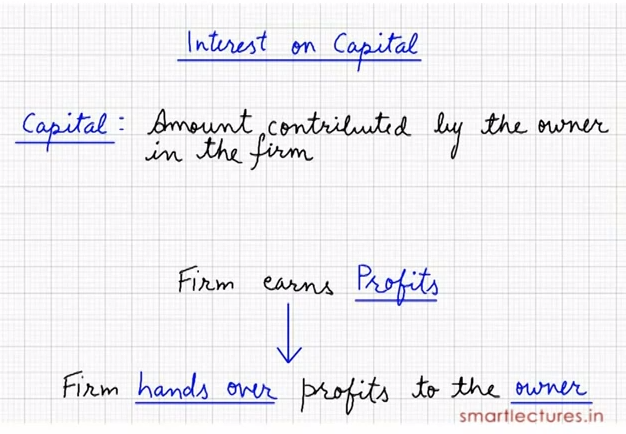 Interest on Capital
Capital: Amount contributed by the owner
in the firm
Firm earns Profits
Firm hands over profits to the owner
smartlectures.in